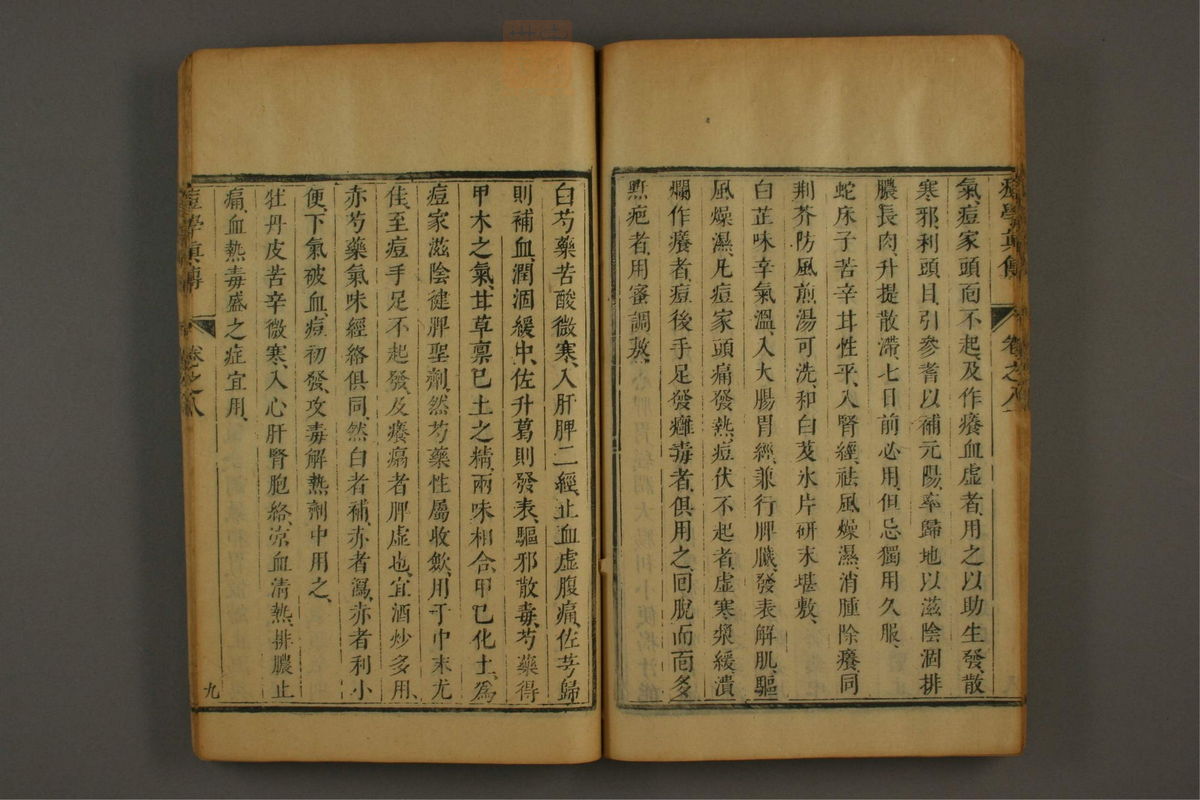 痘學真傳 卷之八
氣、痘家頭面不起、及作癢血虛者、用之以助生發、散
寒邪、利頭目、引參耆以補元陽、率歸地以滋陰涸、排
膿長肉、升提散滯、七日前必用、但忌獨用久服、
蛇床子苦辛甘性平、入腎經、祛風燥濕、消腫除癢、同
荆芥防風煎湯可洗、和白芨氷片研末堪敷、
白芷味辛氣溫、入大腸胃經、兼行脾臟、發表解肌、驅
風燥濕、凡痘家頭痛發熱、痘伏不起者、虛寒漿緩、潰
爛作癢者、痘後手足發癰毒者、俱用之、回脫而面多
㸃疤者、用蜜調敖、
白芍藥苦酸微寒、入肝脾二經、止血虛腹痛、佐芎歸
則補血、潤涸緩中、佐升葛則發表、驅邪散毒、芍藥得
甲木之氣、甘草稟巳土之精、兩味相合、甲巳化土、爲
痘家滋陰健脾聖劑、然芍藥性屬收斂、用于中末尤
佳、至痘手足不起發、及癢癟者、脾虛也、宜酒炒多用、
赤芍藥氣味經絡俱同、然白者補、赤者瀉、赤者利小
便、下氣破血、痘初發、攻毒解熱劑中用之、
牡丹皮苦辛微寒、入心肝腎胞絡、涼血清熱、排膿止
痛、血熱毒盛之症宜用、
痘學真傳 卷之八
九